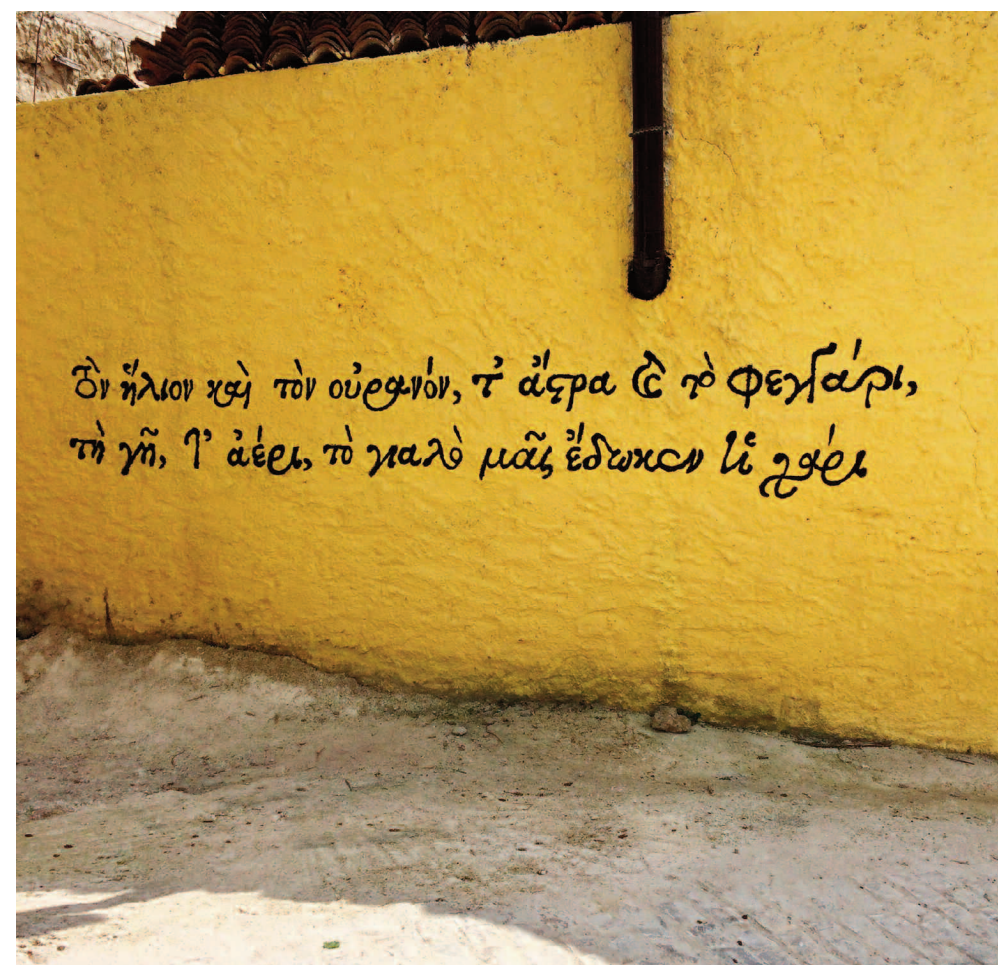 Τὸν ἥλιον καὶ τὸν οὐρανόν, τ' ἄστρα καὶ τὸ φεγγάρι,
τὴ γῆ, τ' ἀέρι, τὸ γιαλὸ μᾶς ἔδωκεν ἡ χάρι